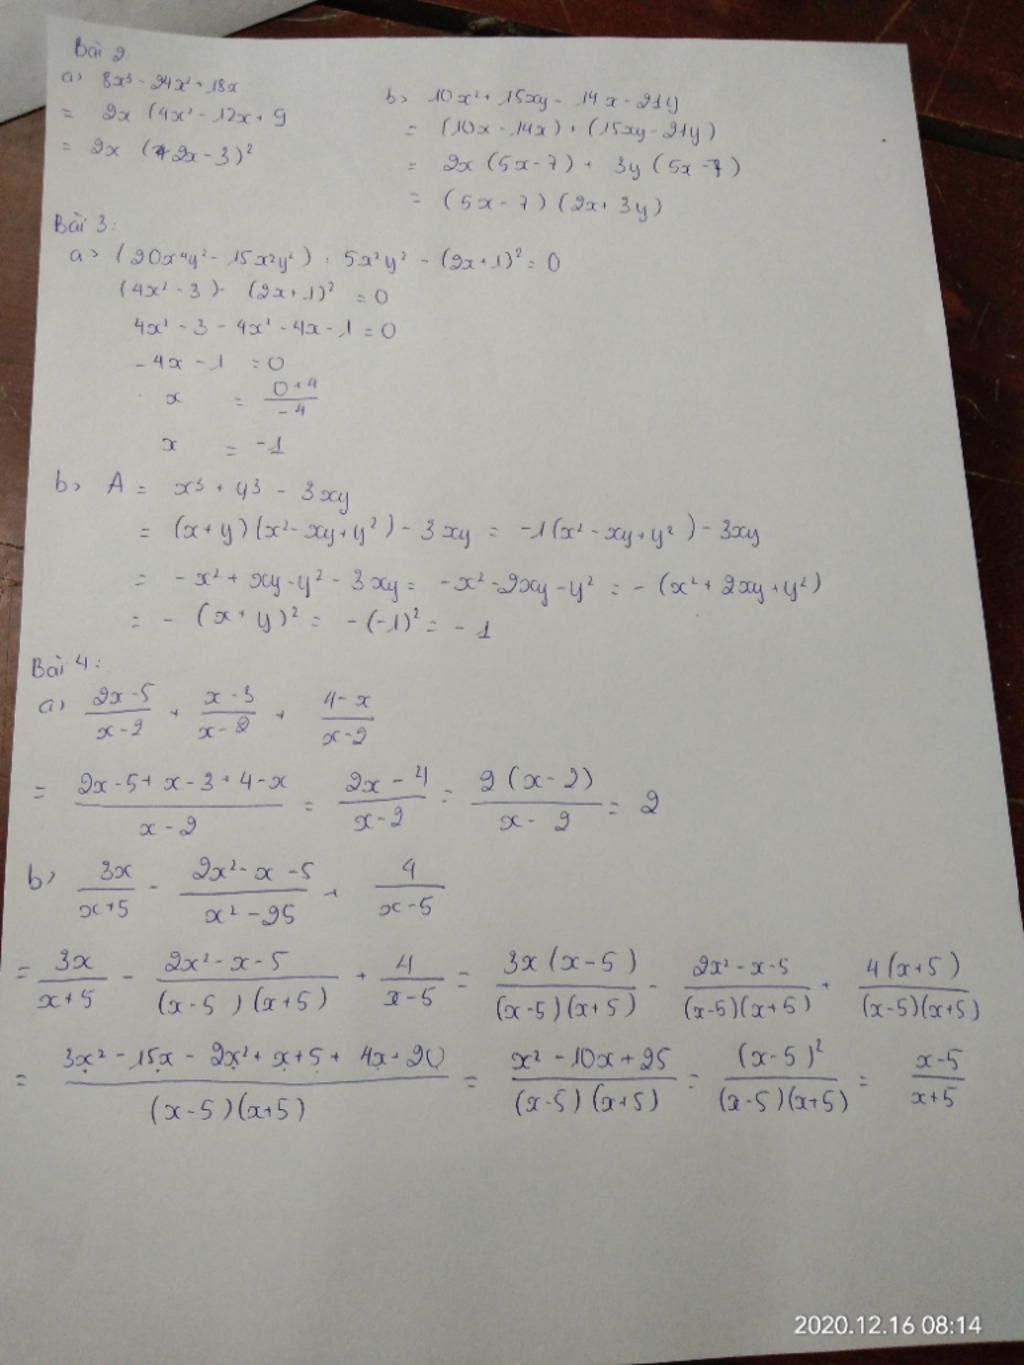 Bài 2
a> 8x³ - 24x² + 18x
= 2x (4x² - 12x + 9
= 2x (2x - 3)²
b> 10x² + 15xy - 14x - 21y
= (10x - 14x) + (15xy - 21y)
= 2x (5x - 7) + 3y (5x - 7)
= (5x - 7) (2x + 3y)
Bài 3:
a> (20x⁴y² - 15x²y²) : 5x²y² - (2x+1)² = 0
(4x² - 3) - (2x+1)² = 0
4x² - 3 - 4x² - 4x - 1 = 0
- 4x - 1 = 0
x = \frac{0+4}{-4}
x = -1
b> A = x³ + y³ - 3xy
= (x+y)(x² - xy + y²) - 3xy = -1(x² - xy + y²) - 3xy
= -x² + xy - y² - 3xy = -x² - 2xy - y² = -(x² + 2xy + y²)
= - (x + y)² = -(-1)² = -1
Bài 4:
a> \frac{2x-5}{x-2} + \frac{x-3}{x-2} + \frac{4-x}{x-2}
= \frac{2x-5+x-3+4-x}{x-2} = \frac{2x-4}{x-2} = \frac{2(x-2)}{x-2} = 2
b> \frac{3x}{x+5} - \frac{2x²-x-5}{x²-25} + \frac{4}{x-5}
= \frac{3x}{x+5} - \frac{2x²-x-5}{(x-5)(x+5)} + \frac{4}{x-5} = \frac{3x(x-5)}{(x-5)(x+5)} - \frac{2x²-x-5}{(x-5)(x+5)} + \frac{4(x+5)}{(x-5)(x+5)}
= \frac{3x²-15x-2x²+x+5+4x+20}{(x-5)(x+5)} = \frac{x²-10x+25}{(x-5)(x+5)} = \frac{(x-5)²}{(x-5)(x+5)} = \frac{x-5}{x+5}
2020.12.16 08:14